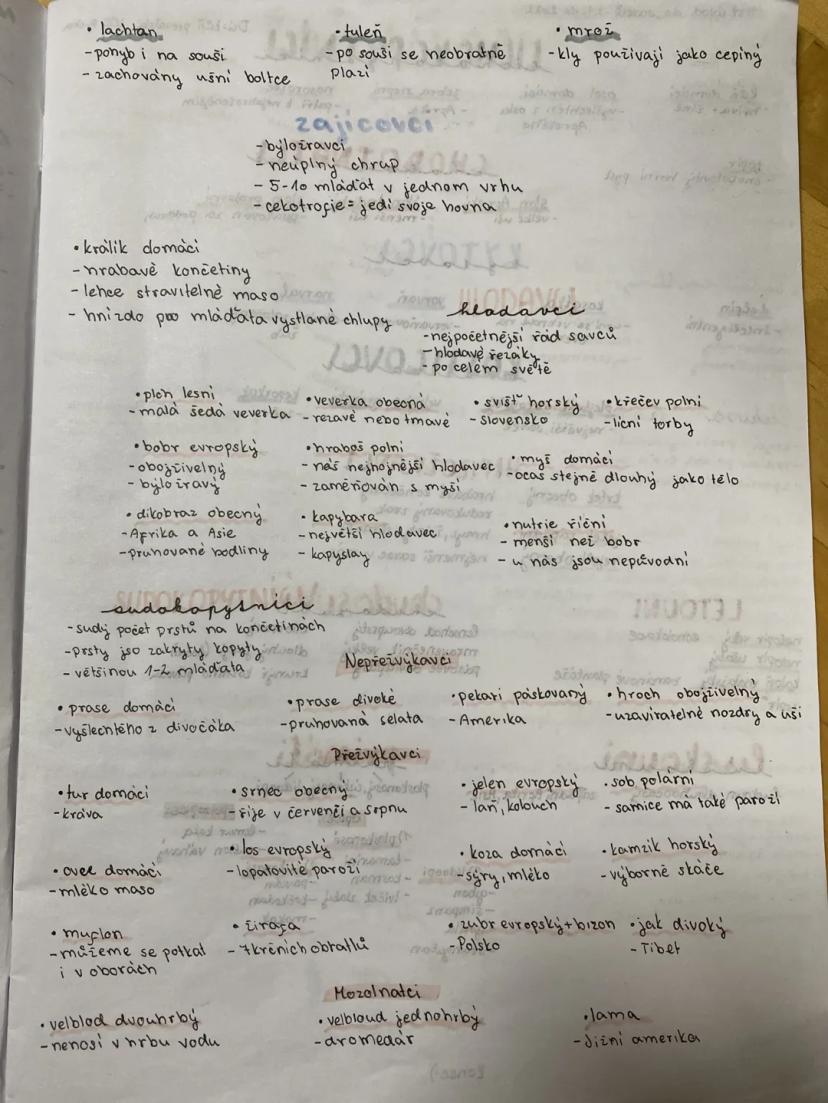 • lachtan
- pohyb i na souši
- zachovány ušní boltce
• tuleň
- po souši se neobratně
plazí
• mrož
- kly používají jako cepíny
zajícovci
- býložravci
- neúplný chrup
- 5-10 mláďat v jednom vrhu
- cekotrofie = jedí svoje hovna
• králík domácí
- hrabavé končetiny
- lehce stravitelné maso
- hnízdo pro mláďata vystlané chlupy
hlodavci
- nejpočetnější řád savců
- hlodavé řezáky
- po celém světě
• plch lesní
- malá šedá veverka
• veverka obecná
- rezavé nebo tmavé
• svišť horský
- Slovensko
• křeček polní
- lícní torby
• bobr evropský
- obojživelný
- býložravý
• hraboš polní
- náš nejhojnější hlodavec
- zaměňován s myší
• myš domácí
- ocas stejně dlouhý jako tělo
• dikobraz obecný
- Afrika a Asie
- pruhované bodliny
• kapybara
- největší hlodavec
- kapyslay
• nutrie říční
- menší než bobr
- u nás jsou nepůvodní
sudokopytníci
- sudý počet prstů na končetinách
- prsty jso zakryty kopyty
- většinou 1-2 mláďata
Nepřežvýkavci
• prase domácí
- vyšlechtěho z divočáka
• prase divoké
- pruhovaná selata
• pekari páskovaný
- Amerika
• hroch obojživelný
- uzavíratelné nozdry a uši
Přežvýkavci
• tur domácí
- kráva
• srnec obecný
- říje v červenci a srpnu
• jelen evropský
- laň, kolouch
• sob polární
- samice má také paroží
• ovce domácí
- mléko maso
• los evropský
- lopatovité paroží
• koza domácí
- sýry, mléko
• kamzík horský
- výborně skáče
• muflon
- můžeme se potkat
i v oborách
• žirafa
- 7 krčních obratlů
• zubr evropský + bizon
- Polsko
• jak divoký
- Tibet
Mozolnatci
• velblod dvouhrbý
- nenosí v hrbu vodu
• velbloud jednohrbý
- dromedár
• lama
- Jižní amerika